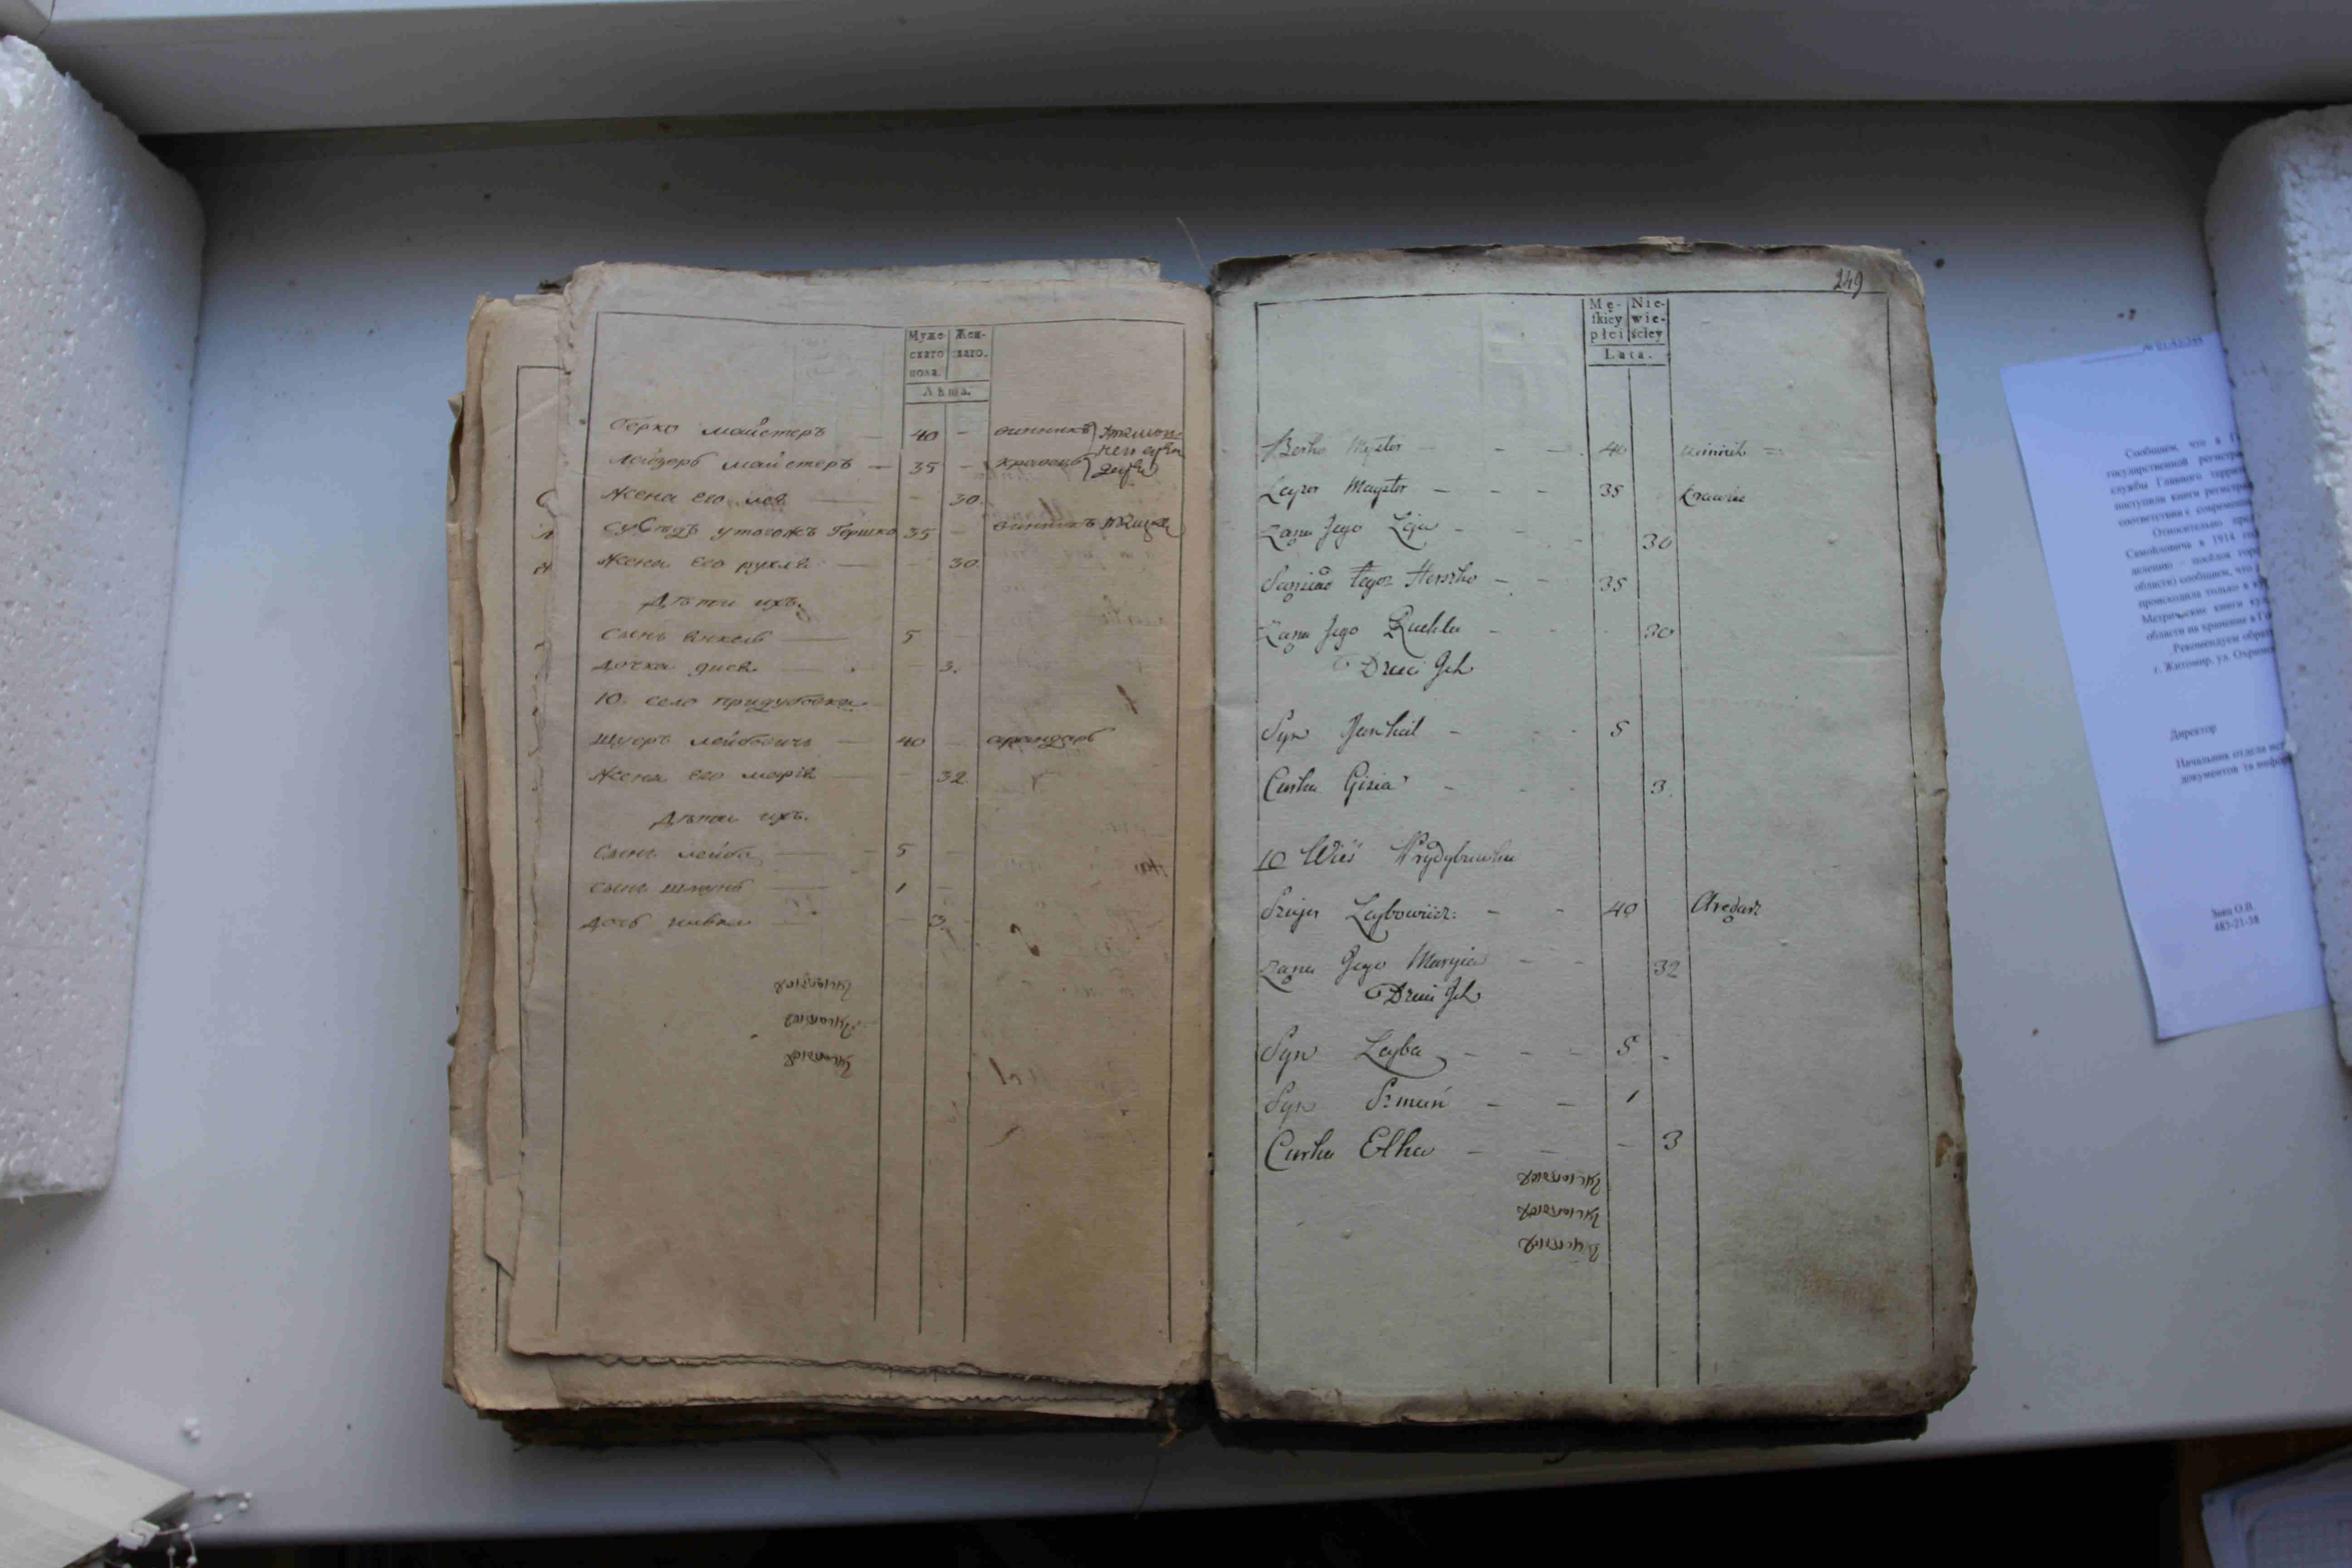 Муже Жен-
скаго скаго.
пола.
Лѣта.
Берко майстеръ — 40 - винникъ
лейзоръ майстеръ — 35 - кравецъ
жена его лея — - 30.
сусѣдъ утогожъ Гершко 35 - винникъ
жена его рухля — - 30.
дѣти ихъ.
сынъ янкель — 5 -
дочка гися — - 3.
10. село придубовка
шуеръ лейбовичъ — 40 - арандарь
жена его марія — - 32.
дѣти ихъ.
сынъ лейба — 5 -
сынъ шмунь — 1 -
дочь - 3.
249
Mę- Nie-
skiey wie-
płci ściey
Lata.
Berko Mayster - - - 40 winnik
Leyzer Mayster - - - 35 Krawiec
Zona Jego Leja - - 30
Sąsiad tegoz Herszko - - 35
Zona Jego Ruchla - - 30
Dzieci Jch
Syn Jankiel - - - 5
Curka Gisia - - - 3.
10 Wieś Prydybuwka
Szujer Leybowicz: - - 40 Aredarz
Zona Jego Maryia - - 32
Dzieci Jch
Syn Leyba - - - 5 -
Syn Szmuń - - 1
Curka Elka - - - 3
Сообщаем, что в
государственной регистра
службы Главного
поступили книги регистра
соответствии с современ
Относительно
Самойловича в 1914
делению – посёлок горо
области) сообщаем, что
происходила только в
Метрические книги
области на хранении в Го
Рекомендуем обрат
г. Житомир, ул. Охримо
Директор
Начальник отдела
документов та инфор
Заяц О.В.
485-21-38